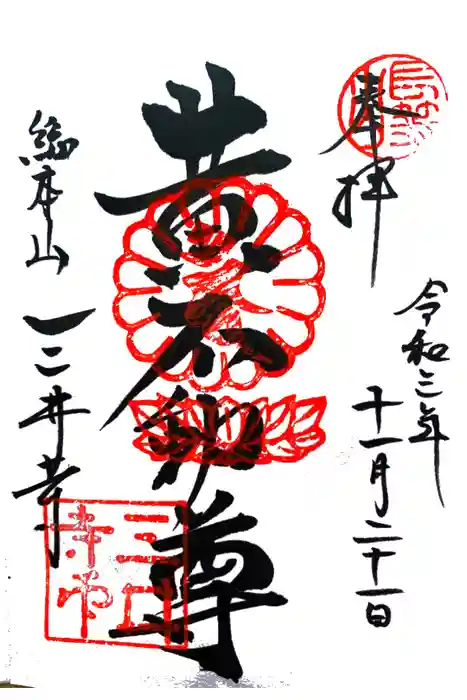 奉拝
令和三年
十一月二十一日
黄不動尊
総本山
三井寺
三井
寺印